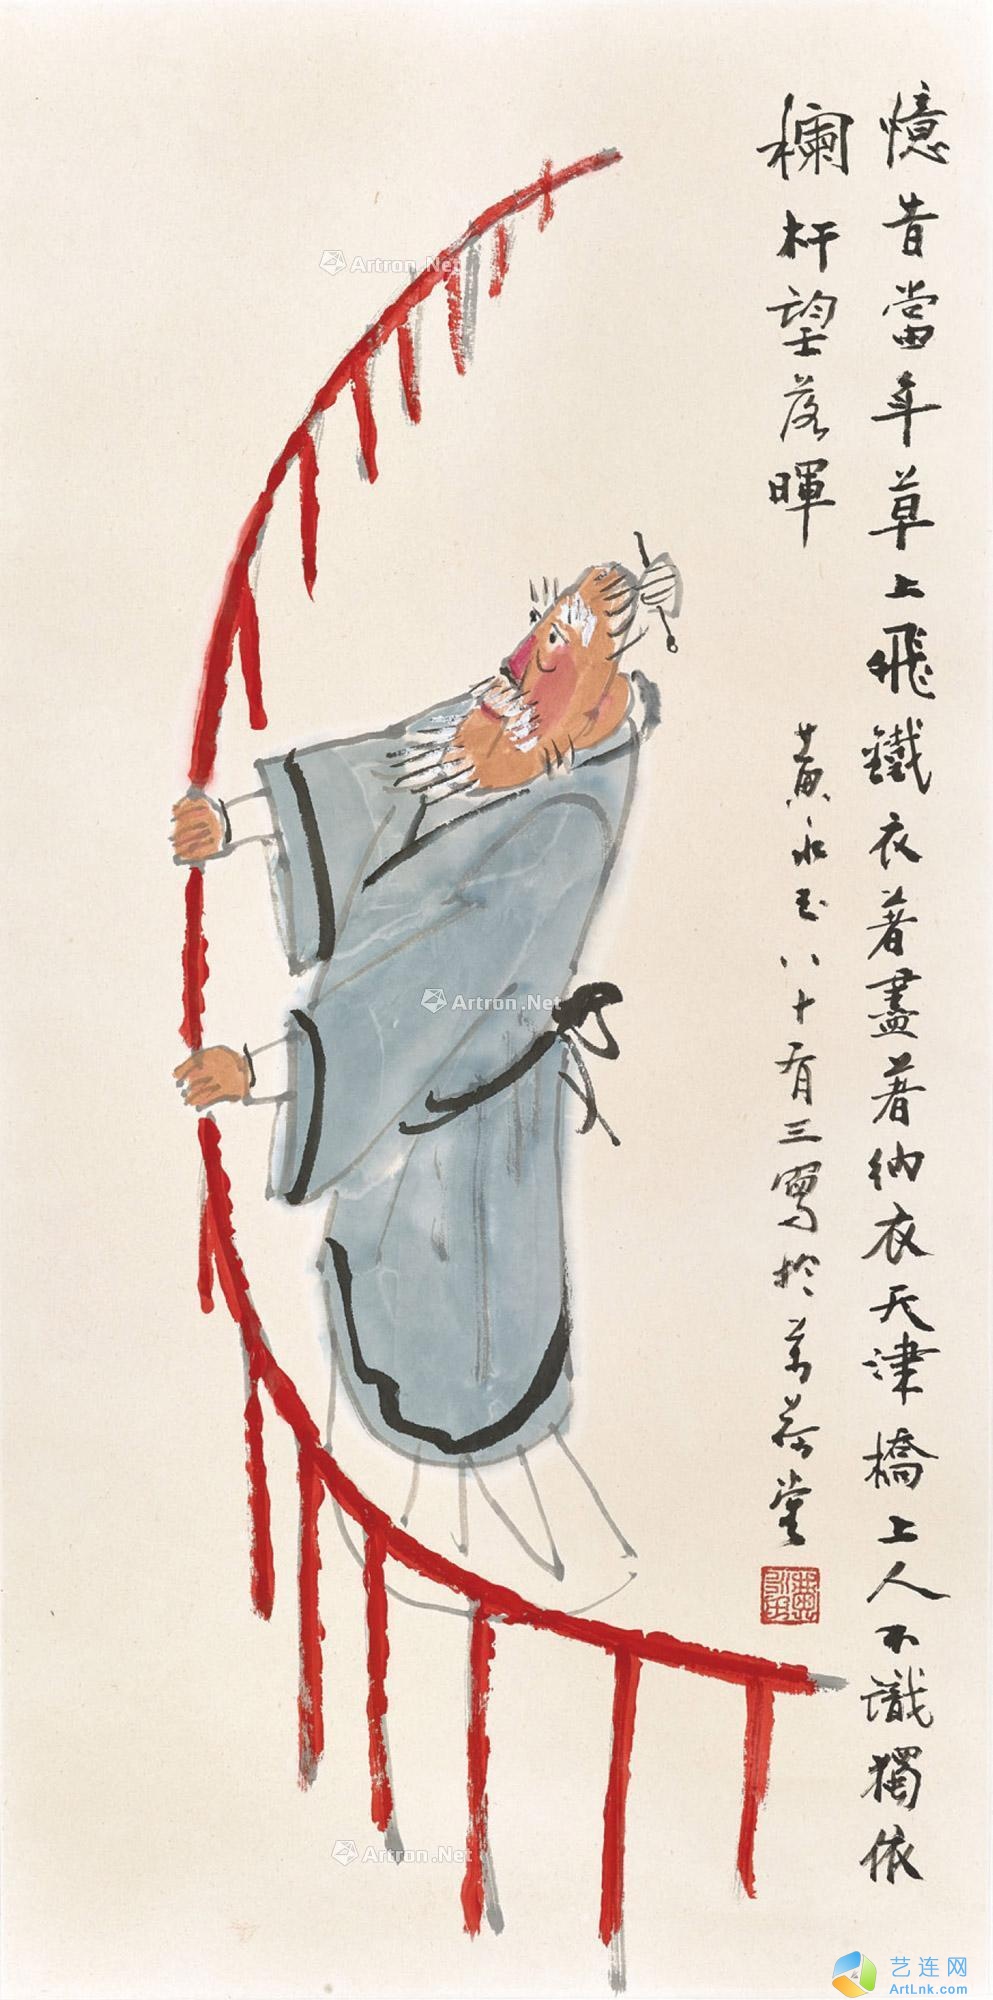 憶昔當年草上飛鐵衣著盡著衲衣天津橋上人不識獨依
欄杆望落暉
黃永玉八十有三寫於萬荷堂
Artron.Net
Artron.Net
Artron.Net
艺连网
ArtLnk.com